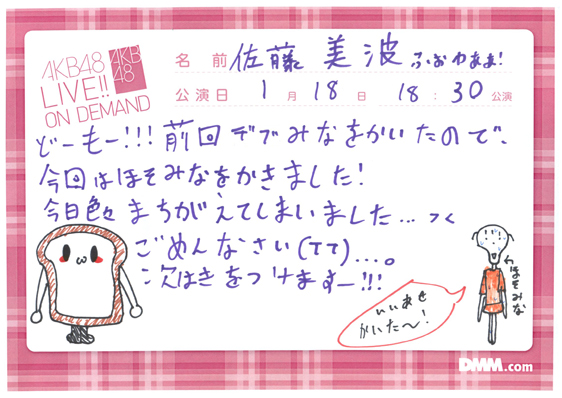 AKB48
LIVE!!
ON DEMAND
AKB
48
名前 佐藤美波 ふぉわぁぁ!
公演日 1月18日 18:30公演
どーもー!!! 前回デブみなをかいたので、
今回はほそみなをかきました!
今日色々まちがえてしまいました...っく
ごめんなさい(TT)...。
次はきをつけますー!!!
ほそみな
いいあせ
かいた〜!
DMM.com